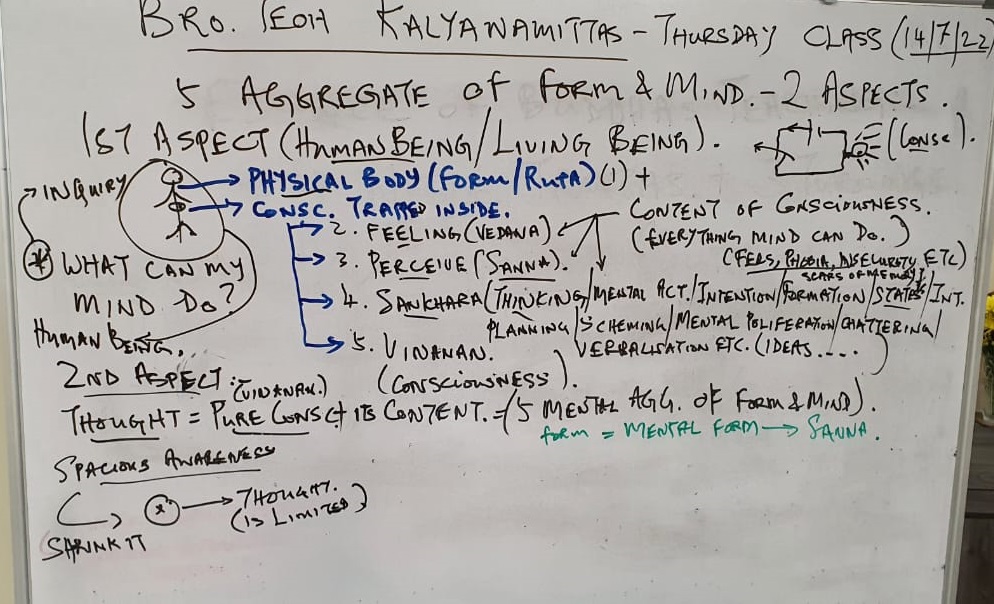 BRO. TEOH KALYANAMITTAS - THURSDAY CLASS (14/7/22)
5 AGGREGATE OF FORM & MIND. - 2 ASPECTS.
1ST ASPECT (HUMAN BEING/LIVING BEING). (CONSC).
INQUIRY
PHYSICAL BODY (FORM/RUPA) (1) +
CONSC. TRAPPED INSIDE.
CONTENT OF CONSCIOUSNESS.
2. FEELING (VEDANA)
(EVERYTHING MIND CAN DO.)
3. PERCEIVE (SANNA).
(FEARS, PHOBIA, INSECURITY ETC)
SCARS OF MEMORY
* WHAT CAN MY
MIND DO?
4. SANKHARA (THINKING/MENTAL ACT./INTENTION/FORMATION/STATES/INT.
PLANNING/SCHEMING/MENTAL POLIFERATION/CHATTERING/
VERBALISATION ETC. (IDEAS.....)
HUMAN BEING.
5. VINANAN.
(CONSCIOUSNESS).
2ND ASPECT: (VINANAN.)
THOUGHT = PURE CONSC + ITS CONTENT. = (5 MENTAL AGG. OF FORM & MIND).
FORM = MENTAL FORM → SANNA.
SPACIOUS AWARENESS
→ THOUGHT.
(IS LIMITED)
SHRINK IT